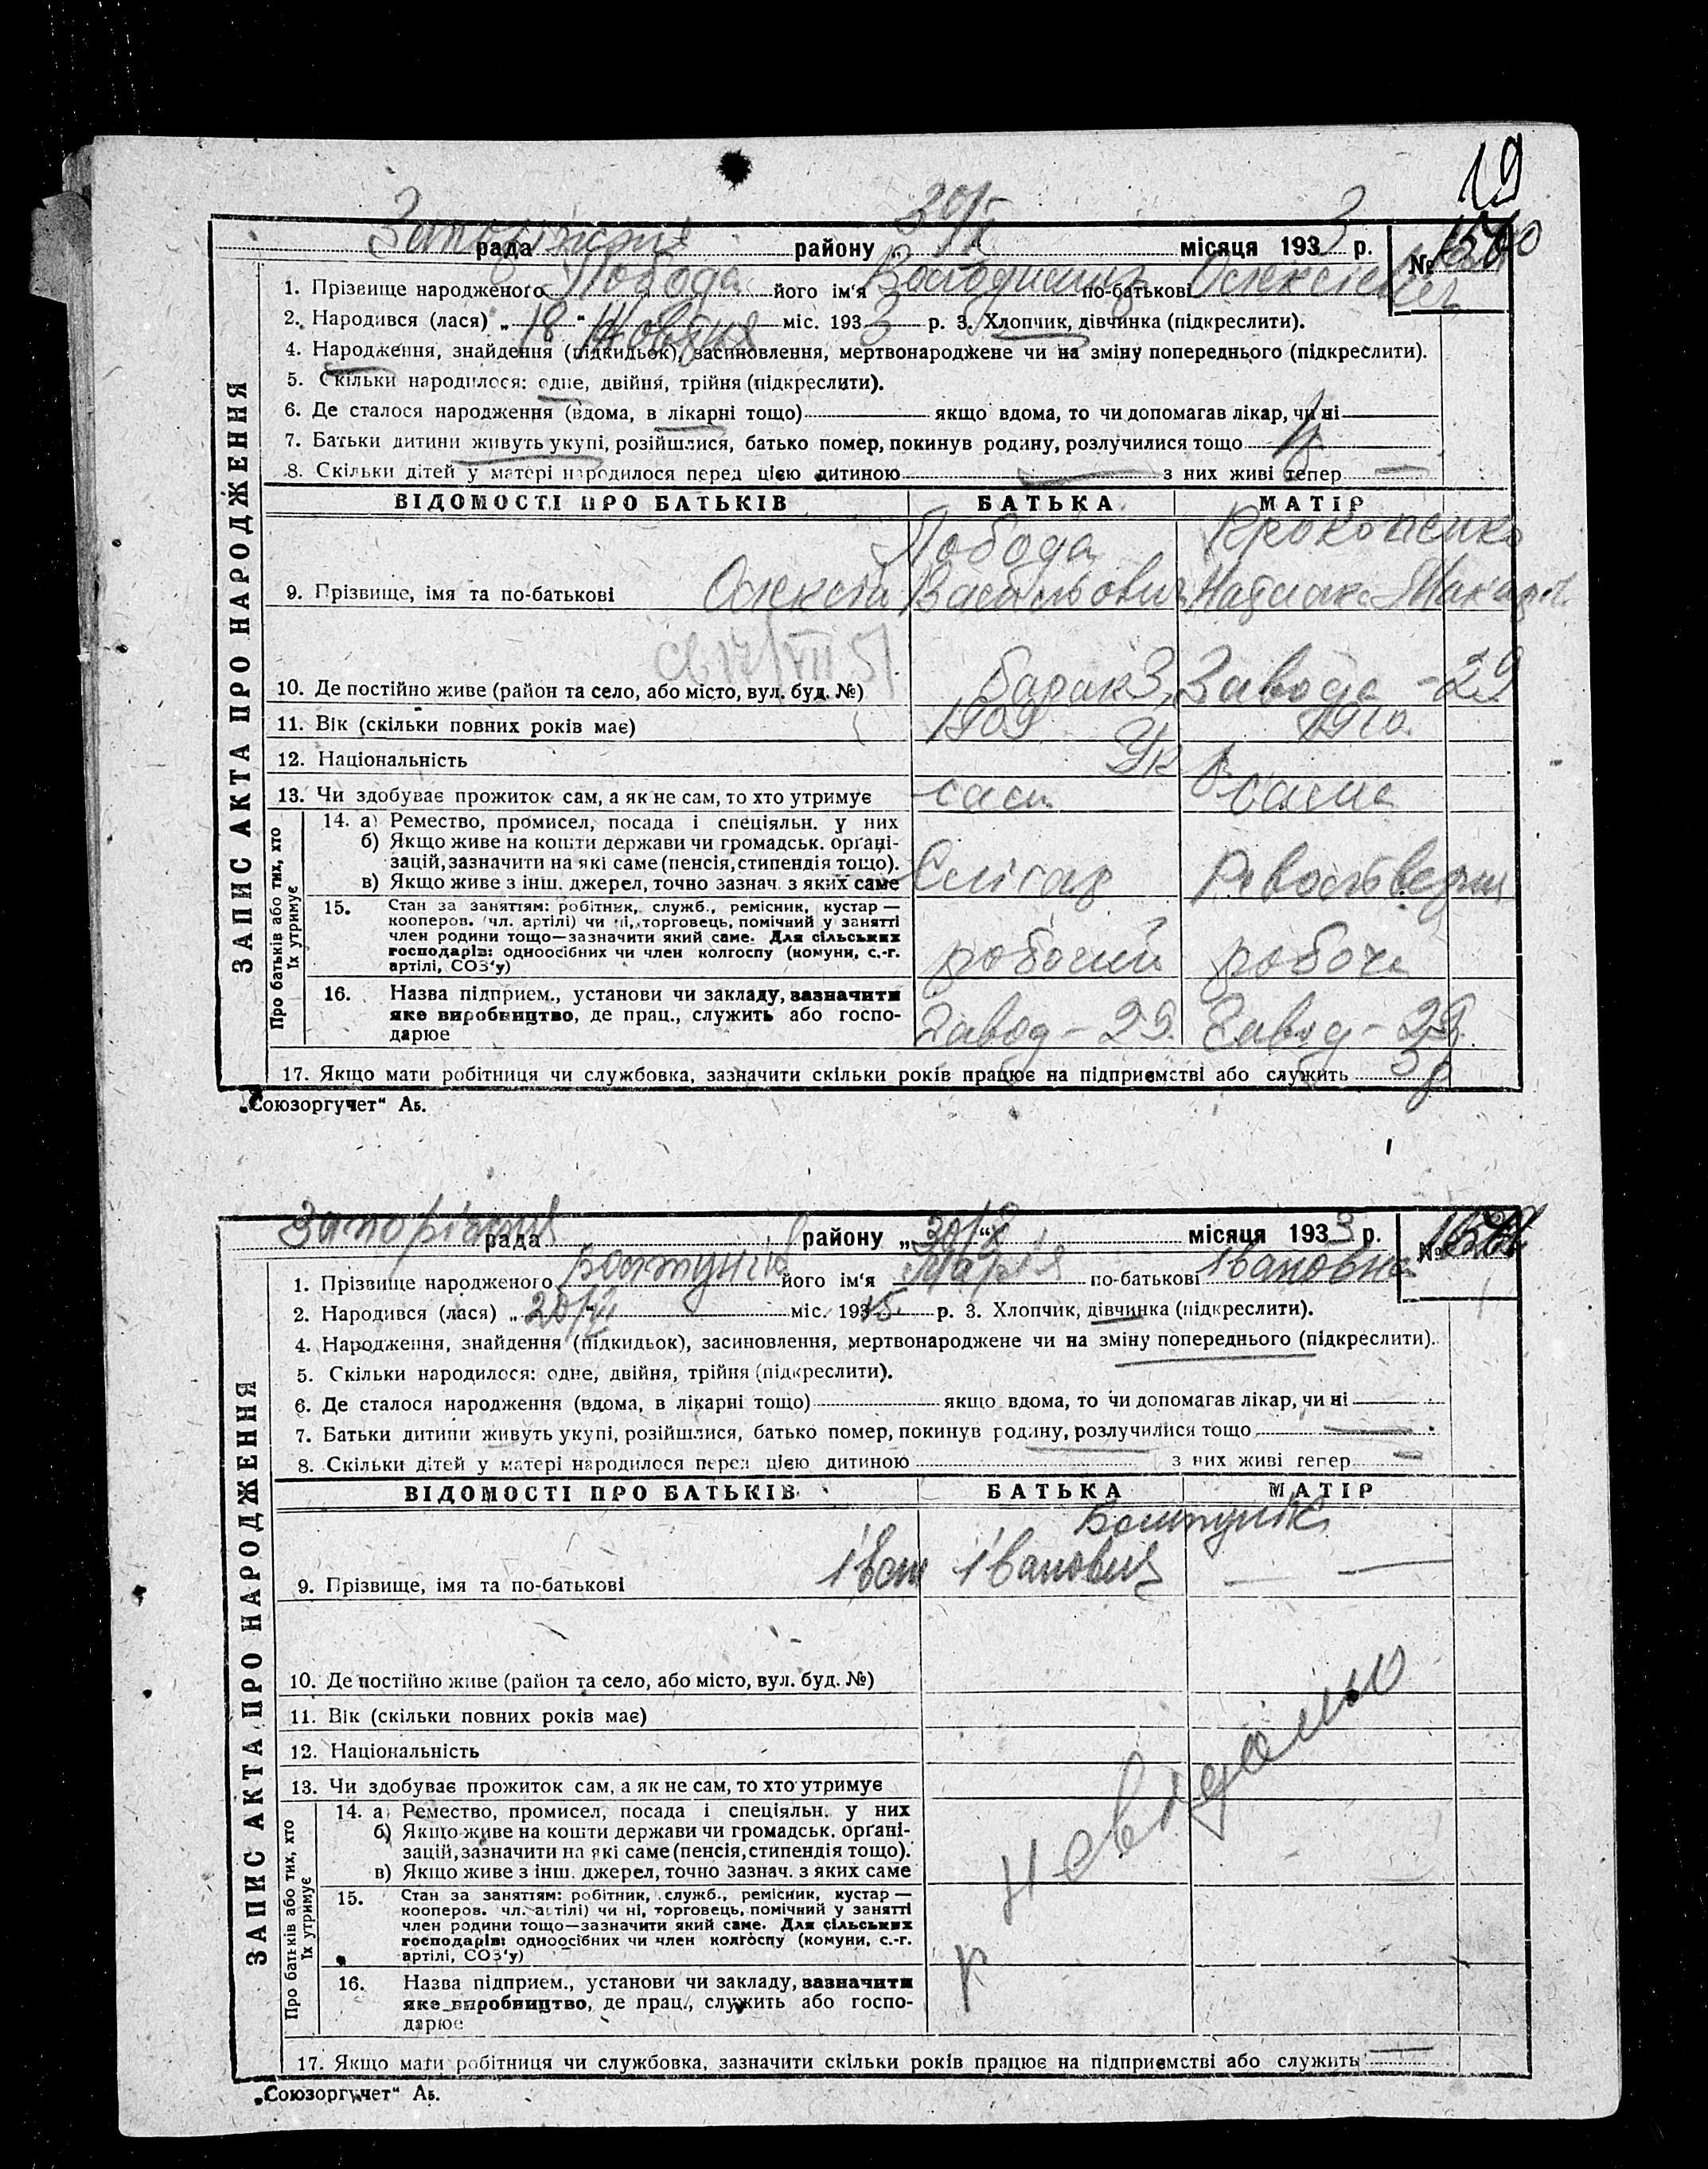 19
Запорізька рада району „30/X місяця 1933 р. №
1. Прізвище народженого Лобода його ім'я Володимир по-батькові Олексієвич
2. Народився (лася) „18“ Жовтня міс. 1933 р. 3. Хлопчик, дівчинка (підкреслити).
4. Народження, знайдення (підкидьок), засиновлення, мертвонароджене чи на зміну попереднього (підкреслити).
5. Скільки народилося: одне, двійня, трійня (підкреслити).
6. Де сталося народження (вдома, в лікарні тощо) якщо вдома, то чи допомагав лікар, чи ні
7. Батьки дитини живуть укупі, розійшлися, батько помер, покинув родину, розлучилися тощо
8. Скільки дітей у матері народилося перед цією дитиною — з них живі тепер —
ЗАПИС АКТА ПРО НАРОДЖЕННЯ
ВІДОМОСТІ ПРО БАТЬКІВ БАТЬКА МАТІР
Лобода Прокопенко
9. Прізвище, імя та по-батькові Олексій Васильович
10. Де постійно живе (район та село, або місто, вул. буд. №) барак 3, Завода - 29
11. Вік (скільки повних років має) 1909 1910
12. Національність Ук
13. Чи здобуває прожиток сам, а як не сам, то хто утримує сам сама
Про батьків або тих, хто їх утримує
14. а) Ремество, промисел, посада і спеціяльн. у них
б) Якщо живе на кошти держави чи громадськ. орґані-
зацій, зазначити на які саме (пенсія, стипендія тощо).
в) Якщо живе з інш. джерел, точно зазнач. з яких саме Слюсар
15. Стан за заняттям: робітник, служб., ремісник, кустар —
кооперов. чл. артілі) чи ні, торговець, помічний у занятті
член родини тощо—зазначити який саме. Для сільських
господарів: одноосібних чи член колгоспу (комуни, с.-г.
артілі, СОЗ'у) робочий робоча
16. Назва підприєм., установи чи закладу, зазначити
яке виробництво, де прац., служить або госпо-
дарює Завод - 29. Завод - 29.
17. Якщо мати робітниця чи службовка, зазначити скільки років працює на підприємстві або служить 3 р
„Союзоргучет“ Аб.
Запорізька рада району „30/X“ місяця 1933 р. №
1. Прізвище народженого його ім'я Марія по-батькові Івановна
2. Народився (лася) „ міс. 1915 р. 3. Хлопчик, дівчинка (підкреслити).
4. Народження, знайдення (підкидьок), засиновлення, мертвонароджене чи на зміну попереднього (підкреслити).
5. Скільки народилося: одне, двійня, трійня (підкреслити).
6. Де сталося народження (вдома, в лікарні тощо) якщо вдома, то чи допомагав лікар, чи ні
7. Батьки дитини живуть укупі, розійшлися, батько помер, покинув родину, розлучилися тощо —
8. Скільки дітей у матері народилося перед цією дитиною з них живі тепер —
ЗАПИС АКТА ПРО НАРОДЖЕННЯ
ВІДОМОСТІ ПРО БАТЬКІВ БАТЬКА МАТІР
9. Прізвище, імя та по-батькові Іван Іванович — —
10. Де постійно живе (район та село, або місто, вул. буд. №)
11. Вік (скільки повних років має)
12. Національність
13. Чи здобуває прожиток сам, а як не сам, то хто утримує
невідомо
Про батьків або тих, хто їх утримує
14. а) Ремество, промисел, посада і спеціяльн. у них
б) Якщо живе на кошти держави чи громадськ. орґані-
зацій, зазначити на які саме (пенсія, стипендія тощо).
в) Якщо живе з інш. джерел, точно зазнач. з яких саме
15. Стан за заняттям: робітник, служб., ремісник, кустар —
кооперов. чл. артілі) чи ні, торговець, помічний у занятті
член родини тощо—зазначити який саме. Для сільських
господарів: одноосібних чи член колгоспу (комуни, с.-г.
артілі, СОЗ'у) р
16. Назва підприєм., установи чи закладу, зазначити
яке виробництво, де прац., служить або госпо-
дарює
17. Якщо мати робітниця чи службовка, зазначити скільки років працює на підприємстві або служить —
„Союзоргучет“ Аб.